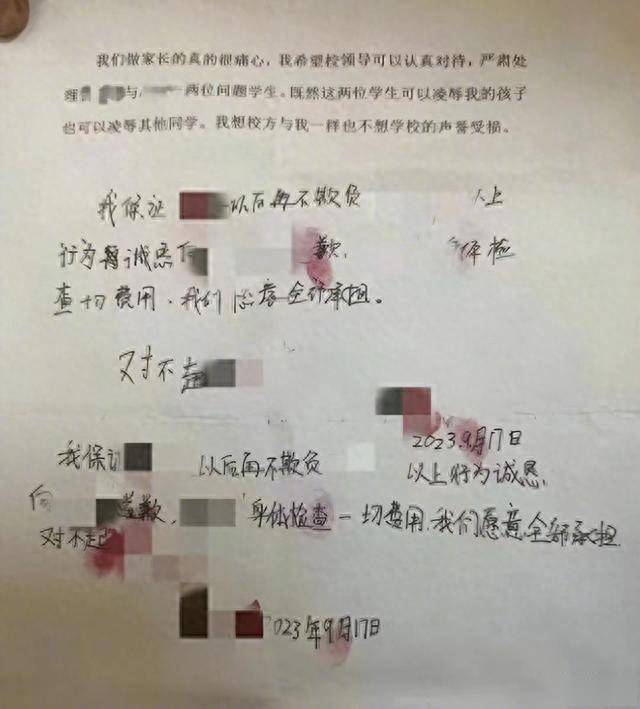 我们做家长的真的很痛心，我希望校领导可以认真对待，严肃处
理 与 两位问题学生。既然这两位学生可以凌辱我的孩子
也可以凌辱其他同学。我想校方与我一样也不想学校的声誉受损。
我保证 以后再不欺负 以上
行为 诚恳 歉, 体检
查一切费用、我们愿意全部承担。
对不起
2023.9月17日
我保证 以后再不欺负 以上行为诚恳,
向 道歉, 身体检查一切费用,我们愿意全部承担
对不起
2023年9月17日